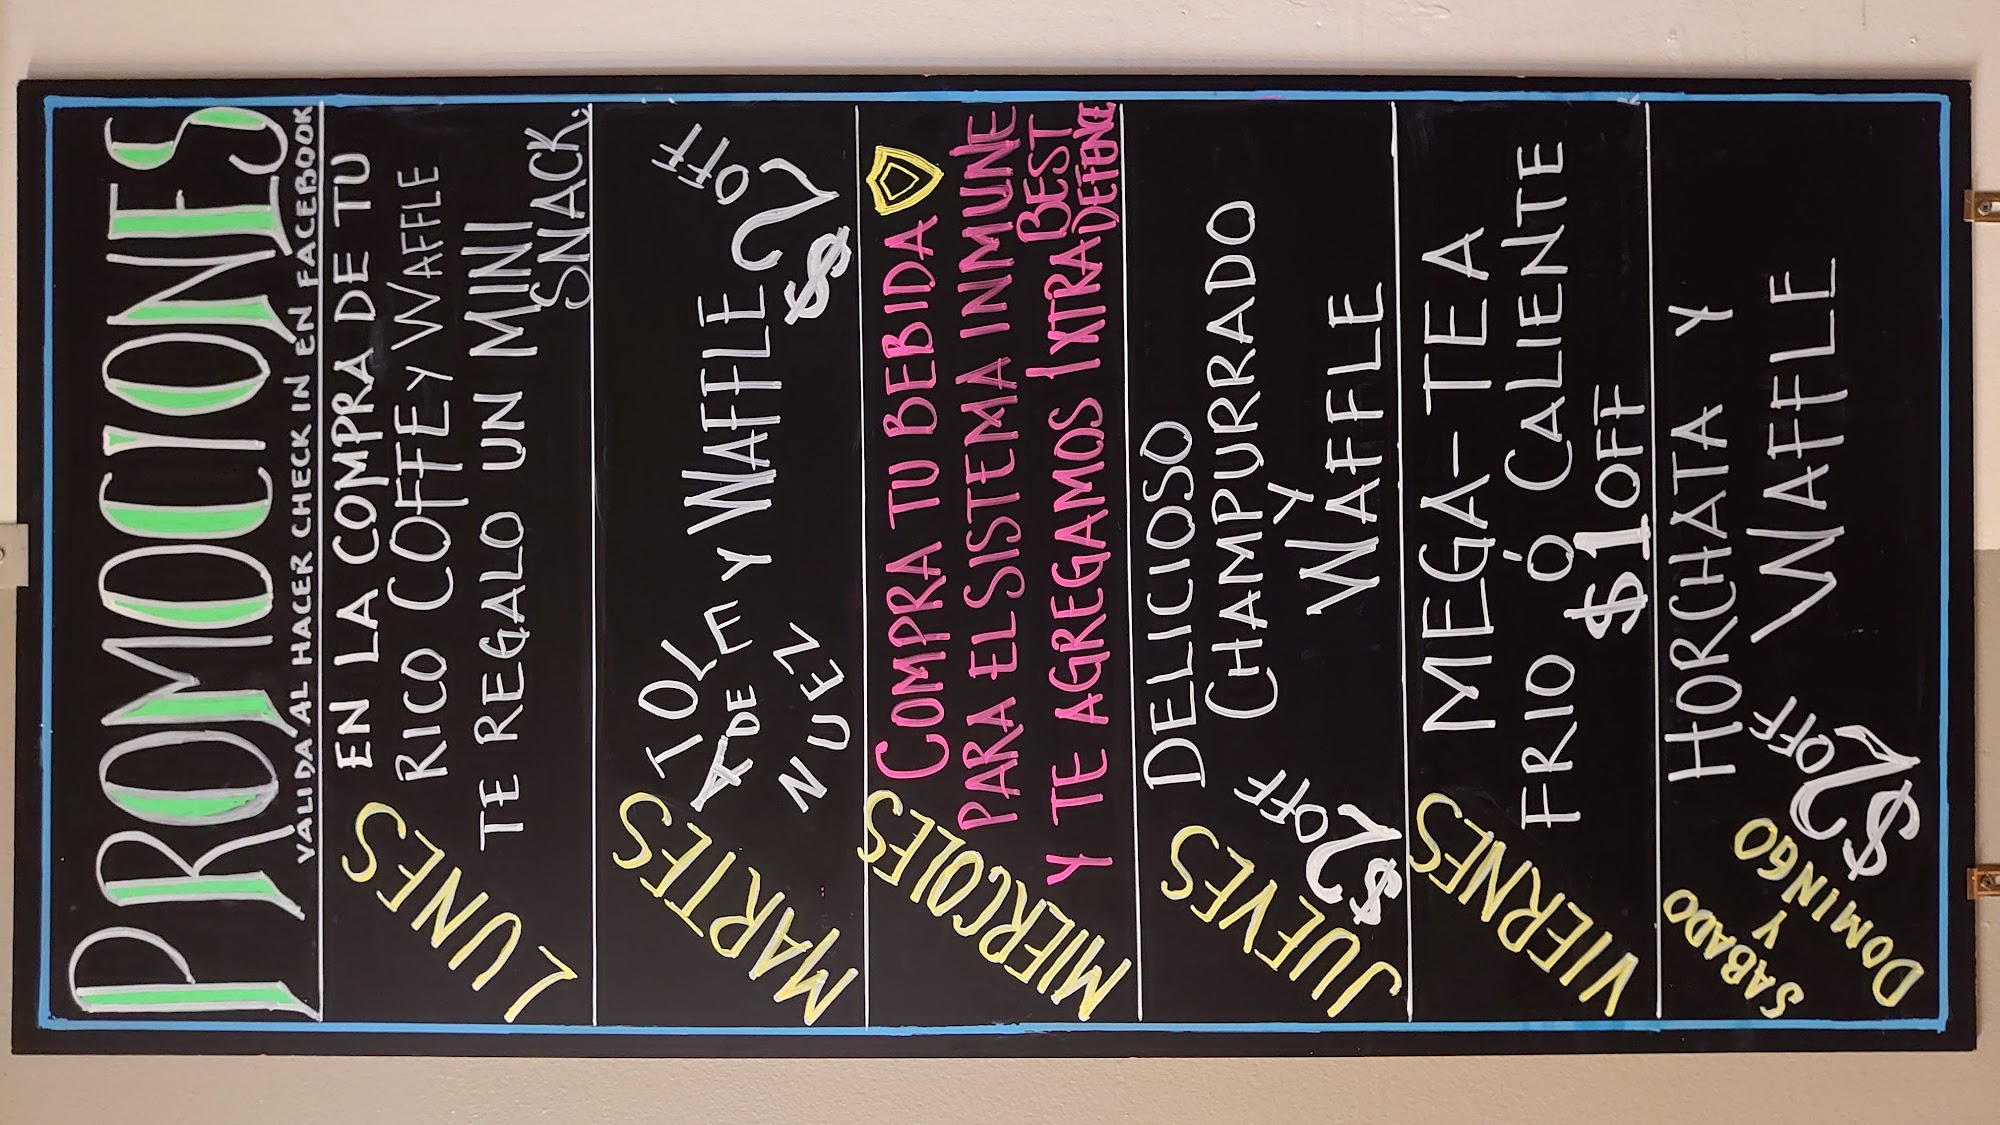 PROMOCIONES
VALIDA AL HACER CHECK IN EN FACEBOOK
LUNES
EN LA COMPRA DE TU
RICO COFFE Y WAFFLE
TE REGALO UN MINI
SNACK.
MARTES
ATOL
DE
NUEZ
Y WAFFLE
$2 OFF
MIERCOLES
COMPRA TU BEBIDA
PARA EL SISTEMA INMUNE
Y TE AGREGAMOS 1 XTRA BEST
DEFENCE
JUEVES
$2 OFF
DELICIOSO
CHAMPURRADO
Y
WAFFLE
VIERNES
MEGA-TEA
FRIO Ó CALIENTE
$1 OFF
SABADO
Y
DOMINGO
HORCHATA Y
WAFFLE
$2 OFF